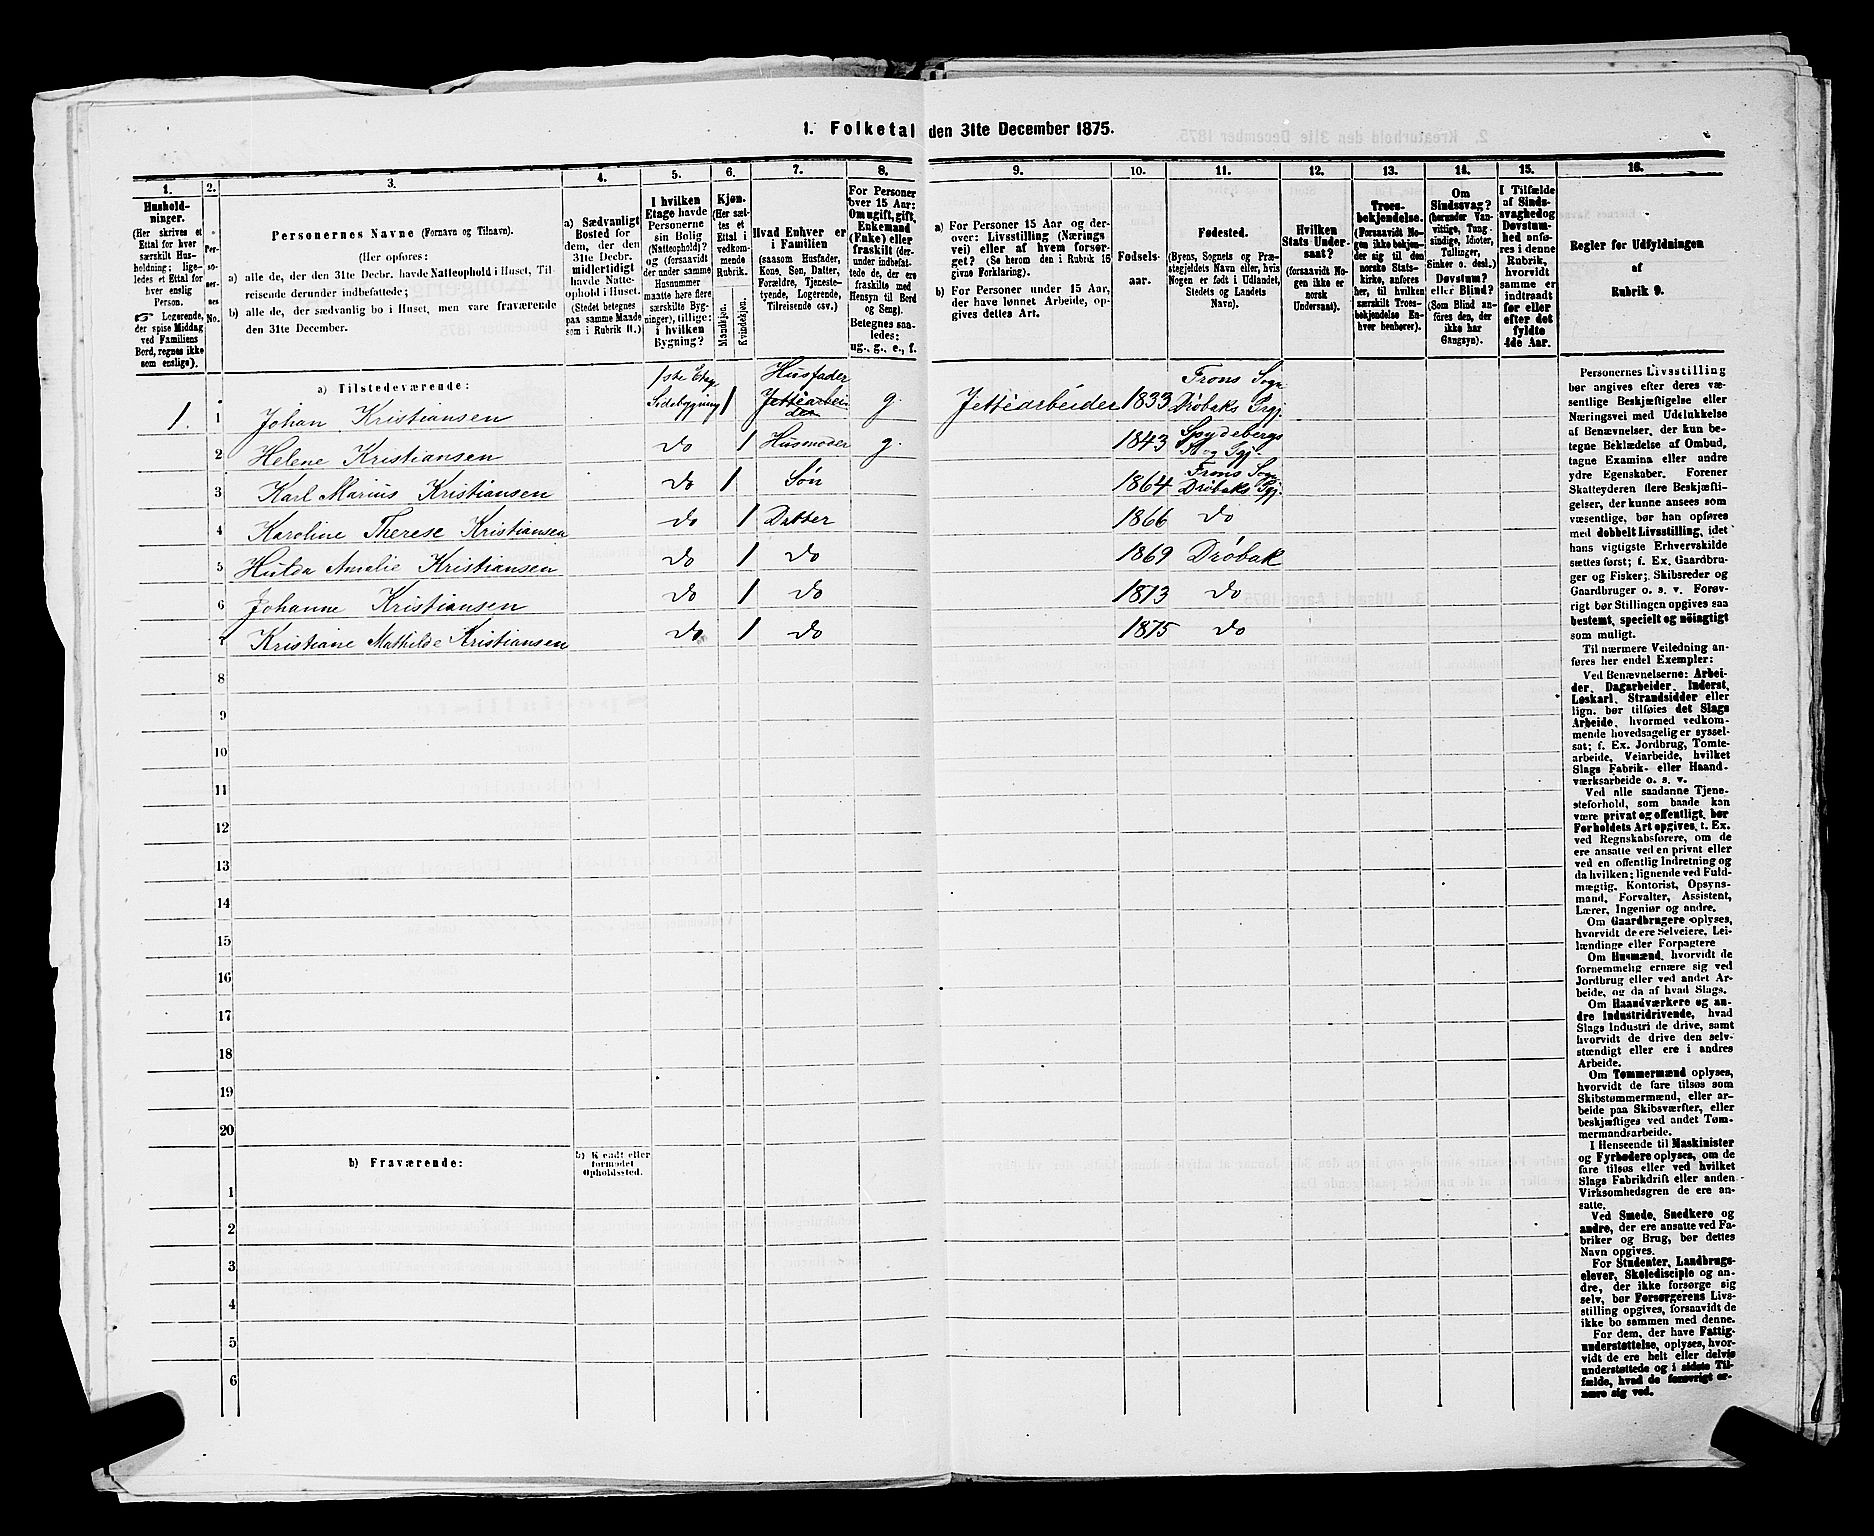 1. Folketal den 31te December 1875.
1.
Hushold-
ninger.
(Her skrives et
Ettal for hver
særskilt Hus-
holdning; lige-
ledes et Ettal for
hver enslig
Person.
Logerende,
der spise Middag
ved Familiens
Bord, regnes ikke
som enslige).
2.
Per-
so-
ner-
nes
No.
3.
Personernes Navne (Fornavn og Tilnavn).
(Her opføres:
a) alle de, der den 31te Decbr. havde Natteophold i Huset, Til-
reisende derunder indbefattede;
b) alle de, der sædvanlig bo i Huset, men vare fraværende
den 31te December.
4.
a) Sædvanligt
Bosted for
dem, der den
31te Decbr.
midlertidigt
havde Natte-
ophold i Huset.
(Stedet betegnes
paa samme Maade
som i Rubrik 11.)
5.
I hvilken
Etage havde
Personerne
sin Bolig
(Natteophold)?
og (forsaavidt
der under samme
Husnummer
maatte høre flere
særskilte Byg-
ninger), tillige:
i hvilken
Bygning?
6.
Kjøn.
(Her sæt-
tes et
Ettal i
vedkom-
mende
Rubrik.
Mandkjøn.
Kvindekjøn.
7.
Hvad Enhver er
i Familien
(saasom Husfader,
Kone, Søn, Datter,
Forældre, Tjeneste-
tyende, Logerende,
Tilreisende osv.)
8.
For Personer
over 15 Aar:
Om ugift, gift,
Enkemand
(Enke) eller
fraskilt (der-
under indbefat-
tede de, der ere
fraskilte med
Hensyn til Bord
og Seng).
Betegnes saa-
ledes:
ug., g., e., f.
9.
a) For Personer 15 Aar og der-
over: Livsstilling (Nærings-
vei) eller af hvem forsør-
get? (Se herom den i Rubrik 16
givne Forklaring).
b) For Personer under 15 Aar,
der have lønnet Arbeide, op-
gives dettes Art.
10.
Fødsels-
aar.
11.
Fødested.
(Byens, Sognets og Præ-
stegjeldets Navn eller, hvis
Nogen er født i Udlandet,
Stedets og Landets
Navn).
12.
Hvilken
Stats Under-
saat?
(forsaavidt No-
gen ikke er
norsk
Undersaat).
13.
Troes-
bekjendelse.
(Forsaavidt No-
gen ikke bekjen-
der sig til den
norske Stats-
kirke, anføres
her, til hvilken
særskilt Troes-
bekjendelse En-
hver henhører).
14.
Om
Sindssvag?
(herunder Van-
vittige, Tung-
sindige, Idioter,
Tullinger,
Sinker o. desl.)
Døvstum?
eller Blind?
(Som Blind an-
føres den, der
ikke har
Gangsyn).
15.
I Tilfælde
af Sinds-
svaghed og
Døvstum-
hed anfø-
res i denne
Rubrik,
hvorvidt
samme er
indtraadt
før eller
efter det
fyldte
4de Aar.
16.
Regler for Udfyldningen
af
Rubrik 9.
a) Tilstedeværende:
1. 1 Johan Kristiansen 1ste Etage Sidebygning 1 Husfader Jettéarbeider g. Jettéarbeider 1833 Frons Sogn Drøbaks Pgj.
2 Helene Kristiansen do 1 Husmoder g. 1843 Spydebergs S og Pgj.
3 Karl Marius Kristiansen do 1 Søn 1864 Frons Sogn Drøbaks Pgj.
4 Karoline Therese Kristiansen do 1 Datter 1866 do
5 Hulda Amalie Kristiansen do 1 do 1869 Drøbak
6 Johanne Kristiansen do 1 do 1873 do
7 Kristiane Mathilde Kristiansen do 1 do 1875 do
8
9
10
11
12
13
14
15
16
17
18
19
20
b) Fraværende:
b) Kjendt eller
formodet
Opholdssted.
1
2
3
4
5
6
Personernes Livsstilling
bør angives efter deres væ-
sentlige Beskjæftigelse eller
Næringsvei med Udelukkelse
af Benævnelser, der kun be-
tegne Beklædelse af Ombud,
tagne Examina eller andre
ydre Egenskaber. Forener
Skatteyderen flere Beskjæfti-
gelser, der kunne ansees som
væsentlige, bør han opføres
med dobbelt Livsstilling, idet
hans vigtigste Erhvervskilde
sættes først; f. Ex. Gaardbru-
ger og Fisker; Skibsreder og
Gaardbruger o. s. v. Forøv-
rigt bør Stillingen opgives saa
bestemt, specielt og nöiagtigt
som muligt.
Til nærmere Veiledning an-
føres her endel Exempler:
Ved Benævnelserne: Arbei-
der, Dagarbeider, Inderst,
Løskarl, Strandsidder eller
lign. bør tilføies det Slags
Arbeide, hvormed vedkom-
mende hovedsagelig er syssel-
sat; f. Ex. Jordbrug, Tomte-
arbeide, Veiarbeide, hvilket
Slags Fabrik- eller Haand-
værksarbeide o. s. v.
Ved alle saadanne Tjene-
steforhold, som baade kan
være privat og offentligt, bør
Forholdets Art opgives, t. Ex.
ved Regnskabsførere, om de
ere ansatte ved en privat eller
ved en offentlig Indretning og
da hvilken; lignende ved Fuld-
mægtig, Kontorist, Opsyns-
mand, Forvalter, Assistent,
Lærer, Ingeniør og andre.
Om Gaardbrugere oplyses,
hvorvidt de ere Selveiere, Lei-
lændinge eller Forpagtere
Om Husmænd, hvorvidt de
fornemmelig ernære sig ved
Jordbrug eller ved andet Ar-
beide, og da af hvad Slags.
Om Haandværkere og an-
dre Industridrivende, hvad
Slags Industri de drive, samt
hvorvidt de drive den selv-
stændigt eller ere i andres
Arbeide.
Om Tømmermænd oplyses,
hvorvidt de fare tilsøs som
Skibstømmermænd, eller ar-
beide paa Skibsværfter, eller
beskjæftiges ved andet Tøm-
mermandsarbeide.
I Henseende til Maskinister
og Fyrbødere oplyses, om de
fare tilsøs eller ved hvilket
Slags Fabrikdrift eller anden
Virksomhedsgren de ere an-
satte.
Ved Smede, Snedkere og
andre, der ere ansatte ved Fa-
briker og Brug, bør dettes
Navn opgives.
For Studenter, Landbrugs-
elever, Skoledisciple og an-
dre, der ikke forsørge sig
selv, bør Forsørgerens Livs-
stilling opgives, forsaavidt de
ikke bo sammen med denne.
For dem, der have Fattig-
understøttelse, oplyses, hvor-
vidt de ere helt eller delvis
understøttede og i sidste Til-
fælde, hvad de forøvrigt er-
nære sig ved.